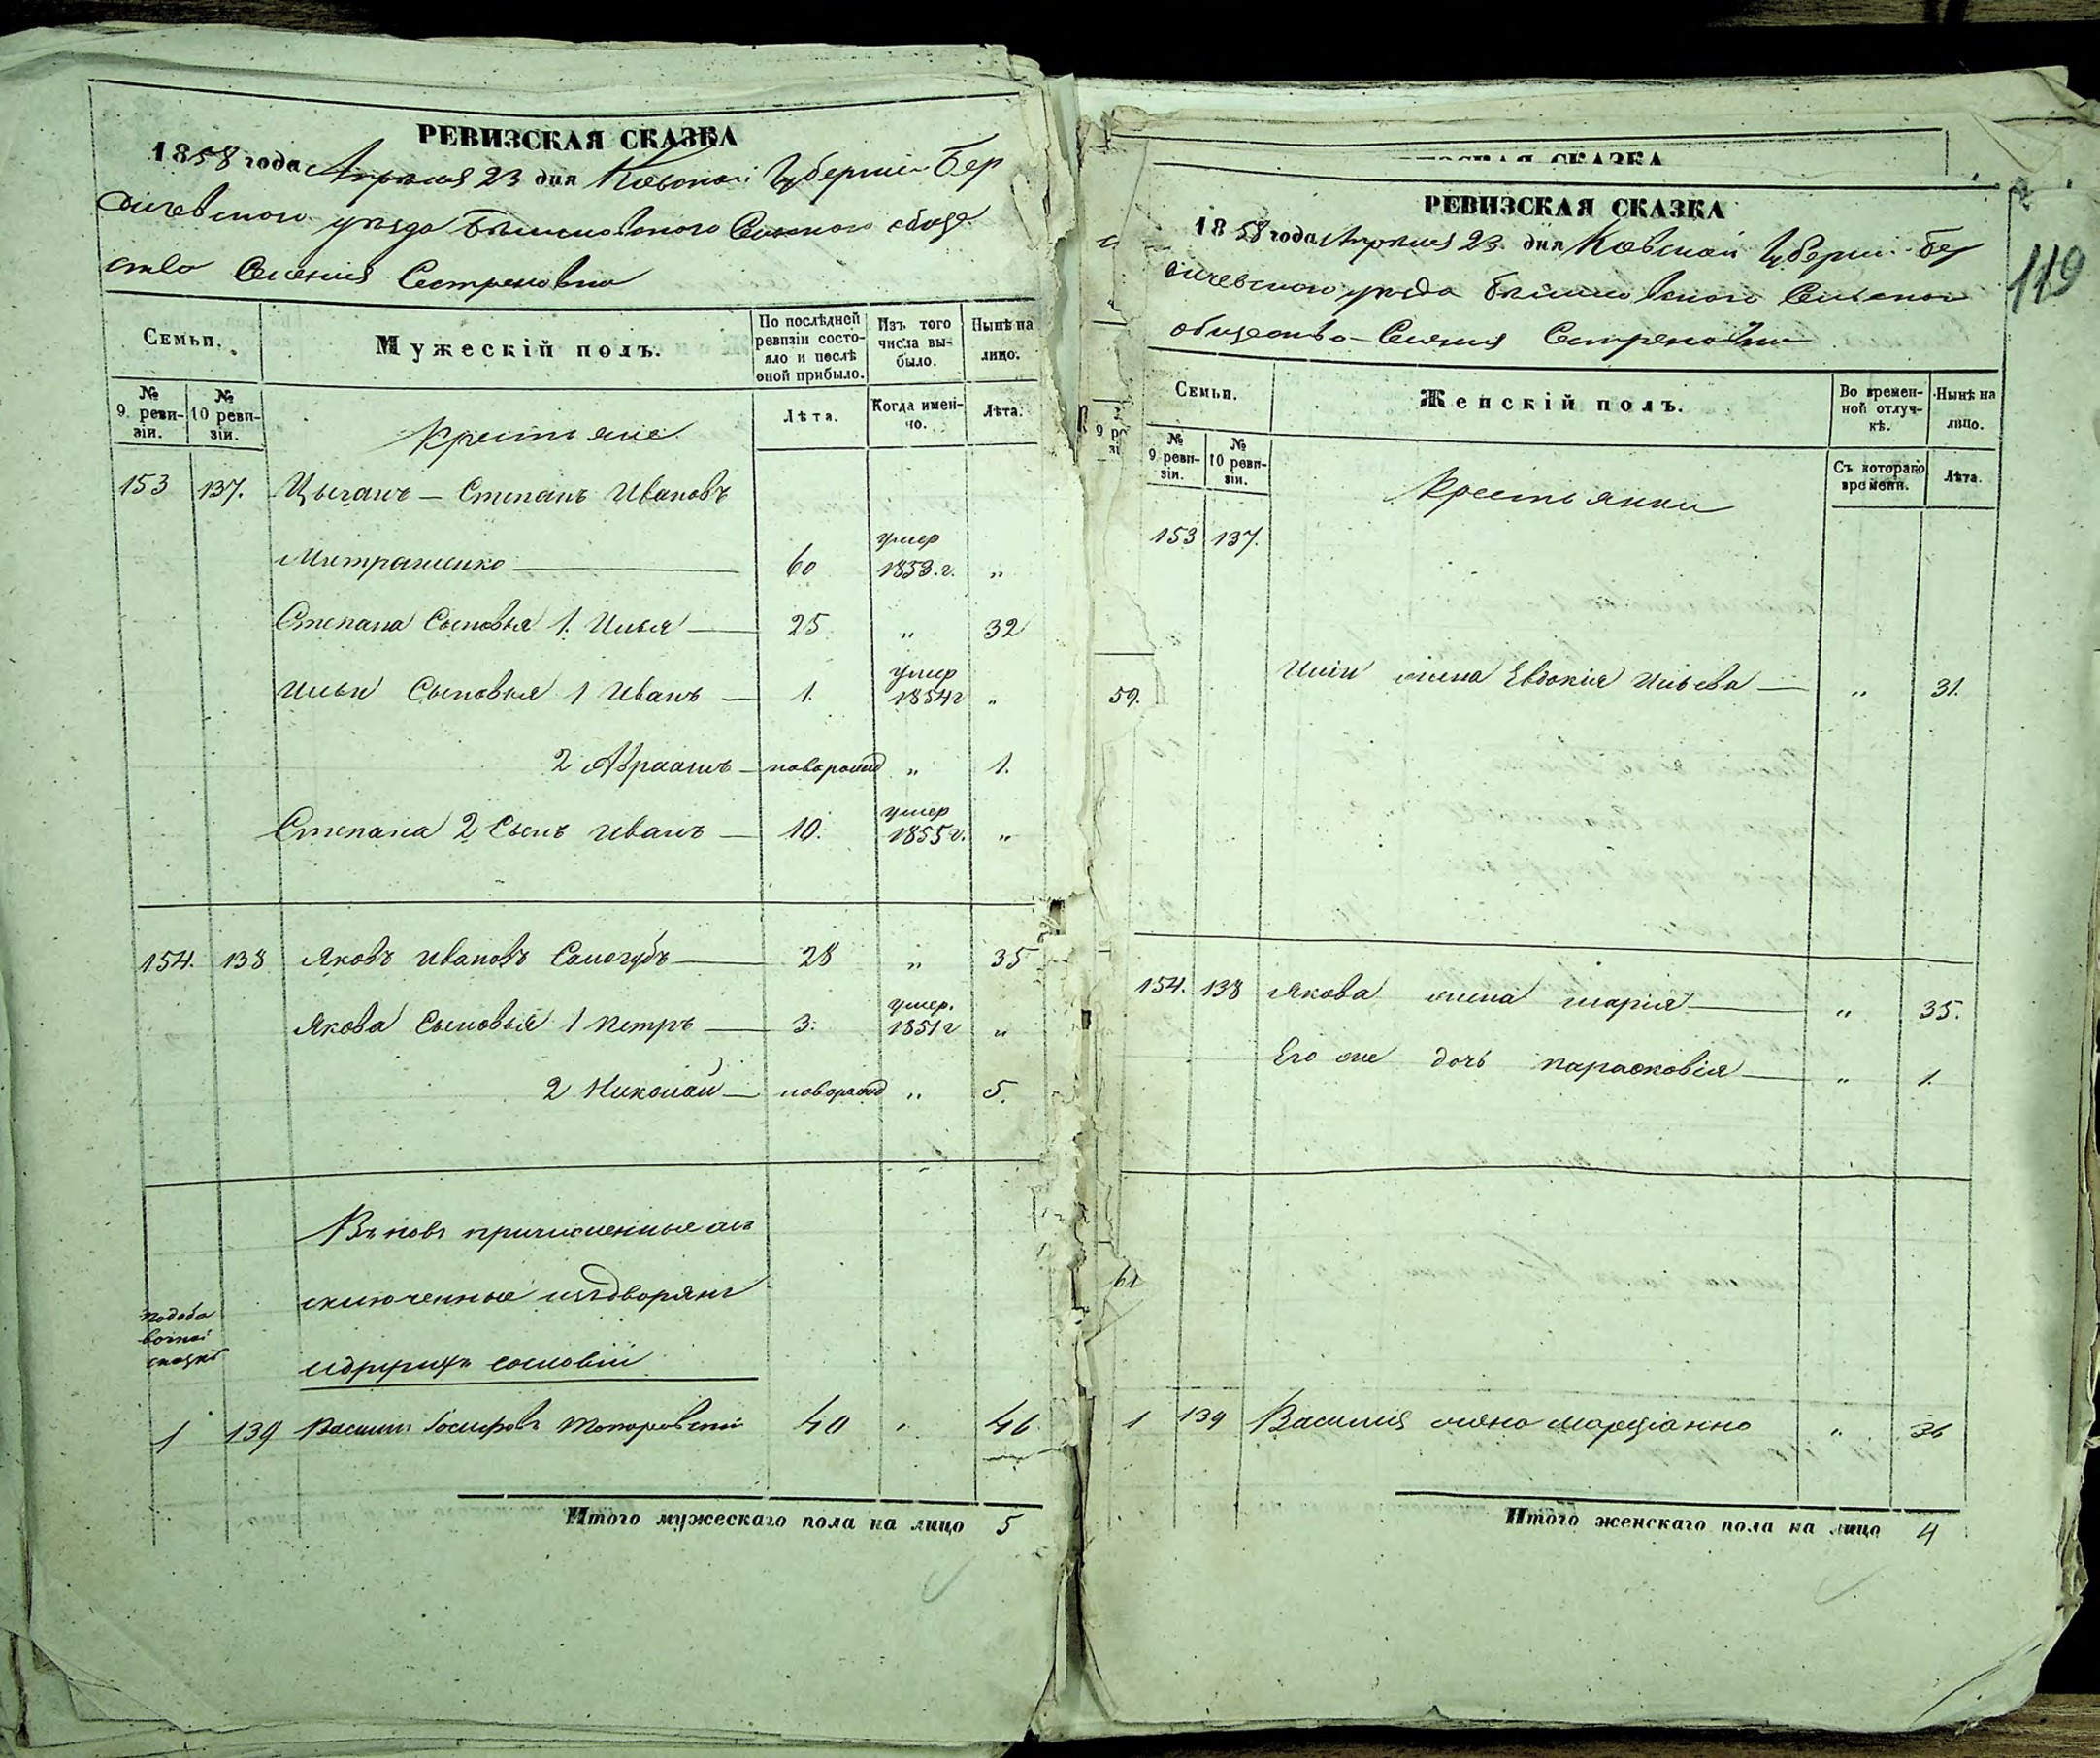 РЕВИЗСКАЯ СКАЗКА
1858 года Апреля 23 дня Киевской Губернии Бер
дичевского уезда Сельского обще
ства Селения Сестреновка
Семьи.
Мужескій полъ.
По послѣдней ревизіи состояло и послѣ оной прибыло.
Изъ того числа выбыло.
Нынѣ на лицо.
№ 9 ревизіи.
№ 10 ревизіи.
Крестьяне
Лѣта.
Когда именно.
Лѣта.
153 137. Цыганъ — Степанъ Ивановъ
Митрашенко 60 умер 1853.г. "
Степана Сыновья 1. Илья 25 " 32
Ильи Сыновья 1 Иванъ 1. умер 1854г "
2 Авраамъ новорожд " 1.
Степана 2 Сынъ Иванъ 10. умер 1855г. "
154. 138 Яковъ Ивановъ Самогубъ 28 " 35
Якова Сыновья 1 Петръ 3. умер. 1851г "
2 Николай новорожд " 5.
Вновь причисленные
сключенные изъ дворянъ
и другихъ сословий
По доба
вочной
сказке
1 139 Василий Иосифовъ Топоровский 40 " 46
Итого мужескаго пола на лицо 5
СКАЗКА
59.
61
119
РЕВИЗСКАЯ СКАЗКА
1858 года Апреля 23 дня Киевской Губернии Бер
дичевского уезда Сельского
общества Селения Сестреновки
Семьи.
Женскій полъ.
Во временной отлучкѣ.
Нынѣ на лицо.
№ 9 ревизіи.
№ 10 ревизіи.
Крестьянки
Съ котораго времени.
Лѣта.
153 137.
Ильи жена Евдокия Ильева " 31.
154. 138 Якова жена Мария " 35.
Его же дочь Парасковия " 1.
1 139 Василия жена Марцианна " 36
Итого женскаго пола на лицо 4